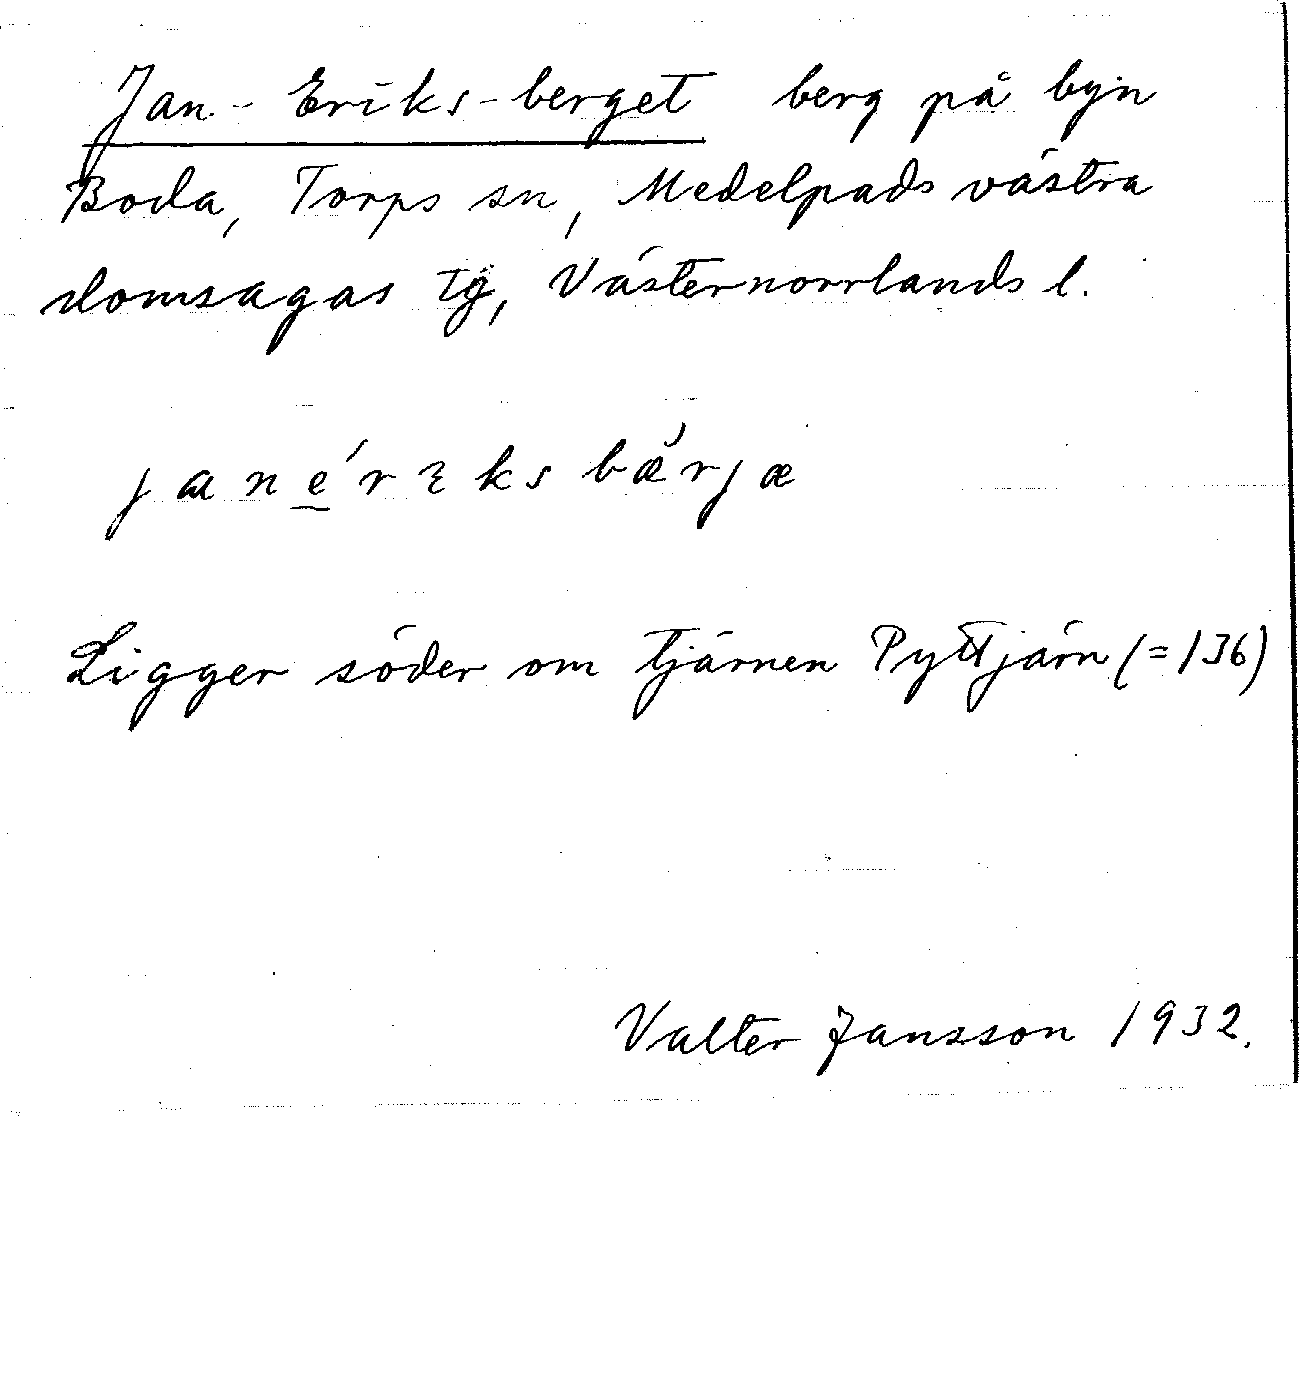 Jan-Eriks-berget berg på byn
Boda, Torps sn, Medelpads västra
domsagas tg, Västernorrlands l.
jané̱rɛksbǽrjæ
Ligger söder om tjärnen Pyttjärn (= 136)
Valter Jansson 1932.